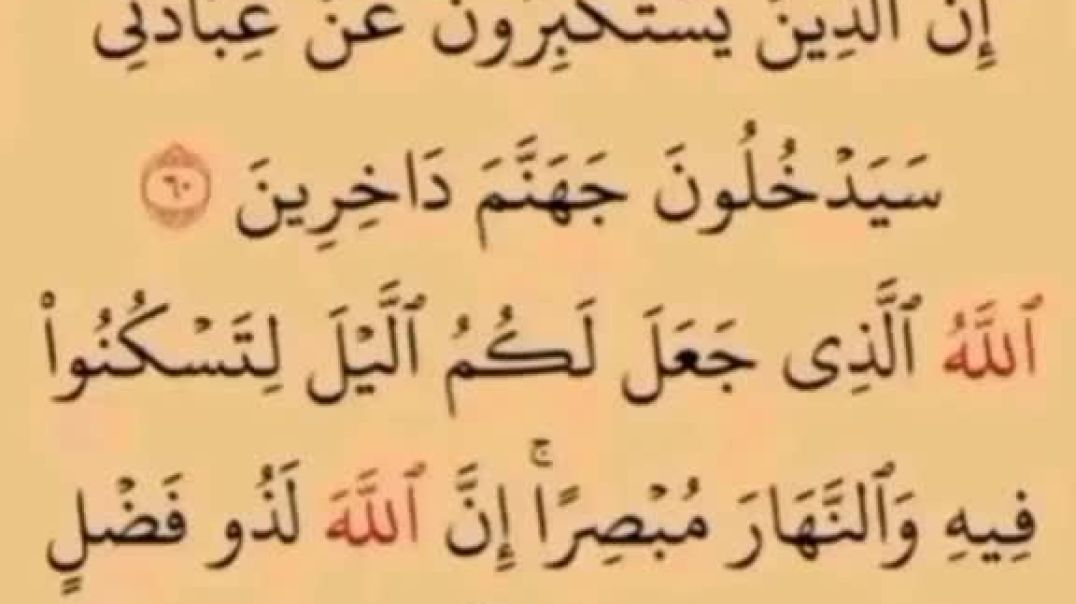 إِنَّ ٱلَّذِينَ يَسۡتَكۡبِرُونَ عَنۡ عِبَادَتِي
سَيَدۡخُلُونَ جَهَنَّمَ دَاخِرِينَ ٦٠
ٱللَّهُ ٱلَّذِى جَعَلَ لَكُمُ ٱلَّيۡلَ لِتَسۡكُنُواْ
فِيهِ وَٱلنَّهَارَ مُبۡصِرًاۚ إِنَّ ٱللَّهَ لَذُو فَضۡلٍ